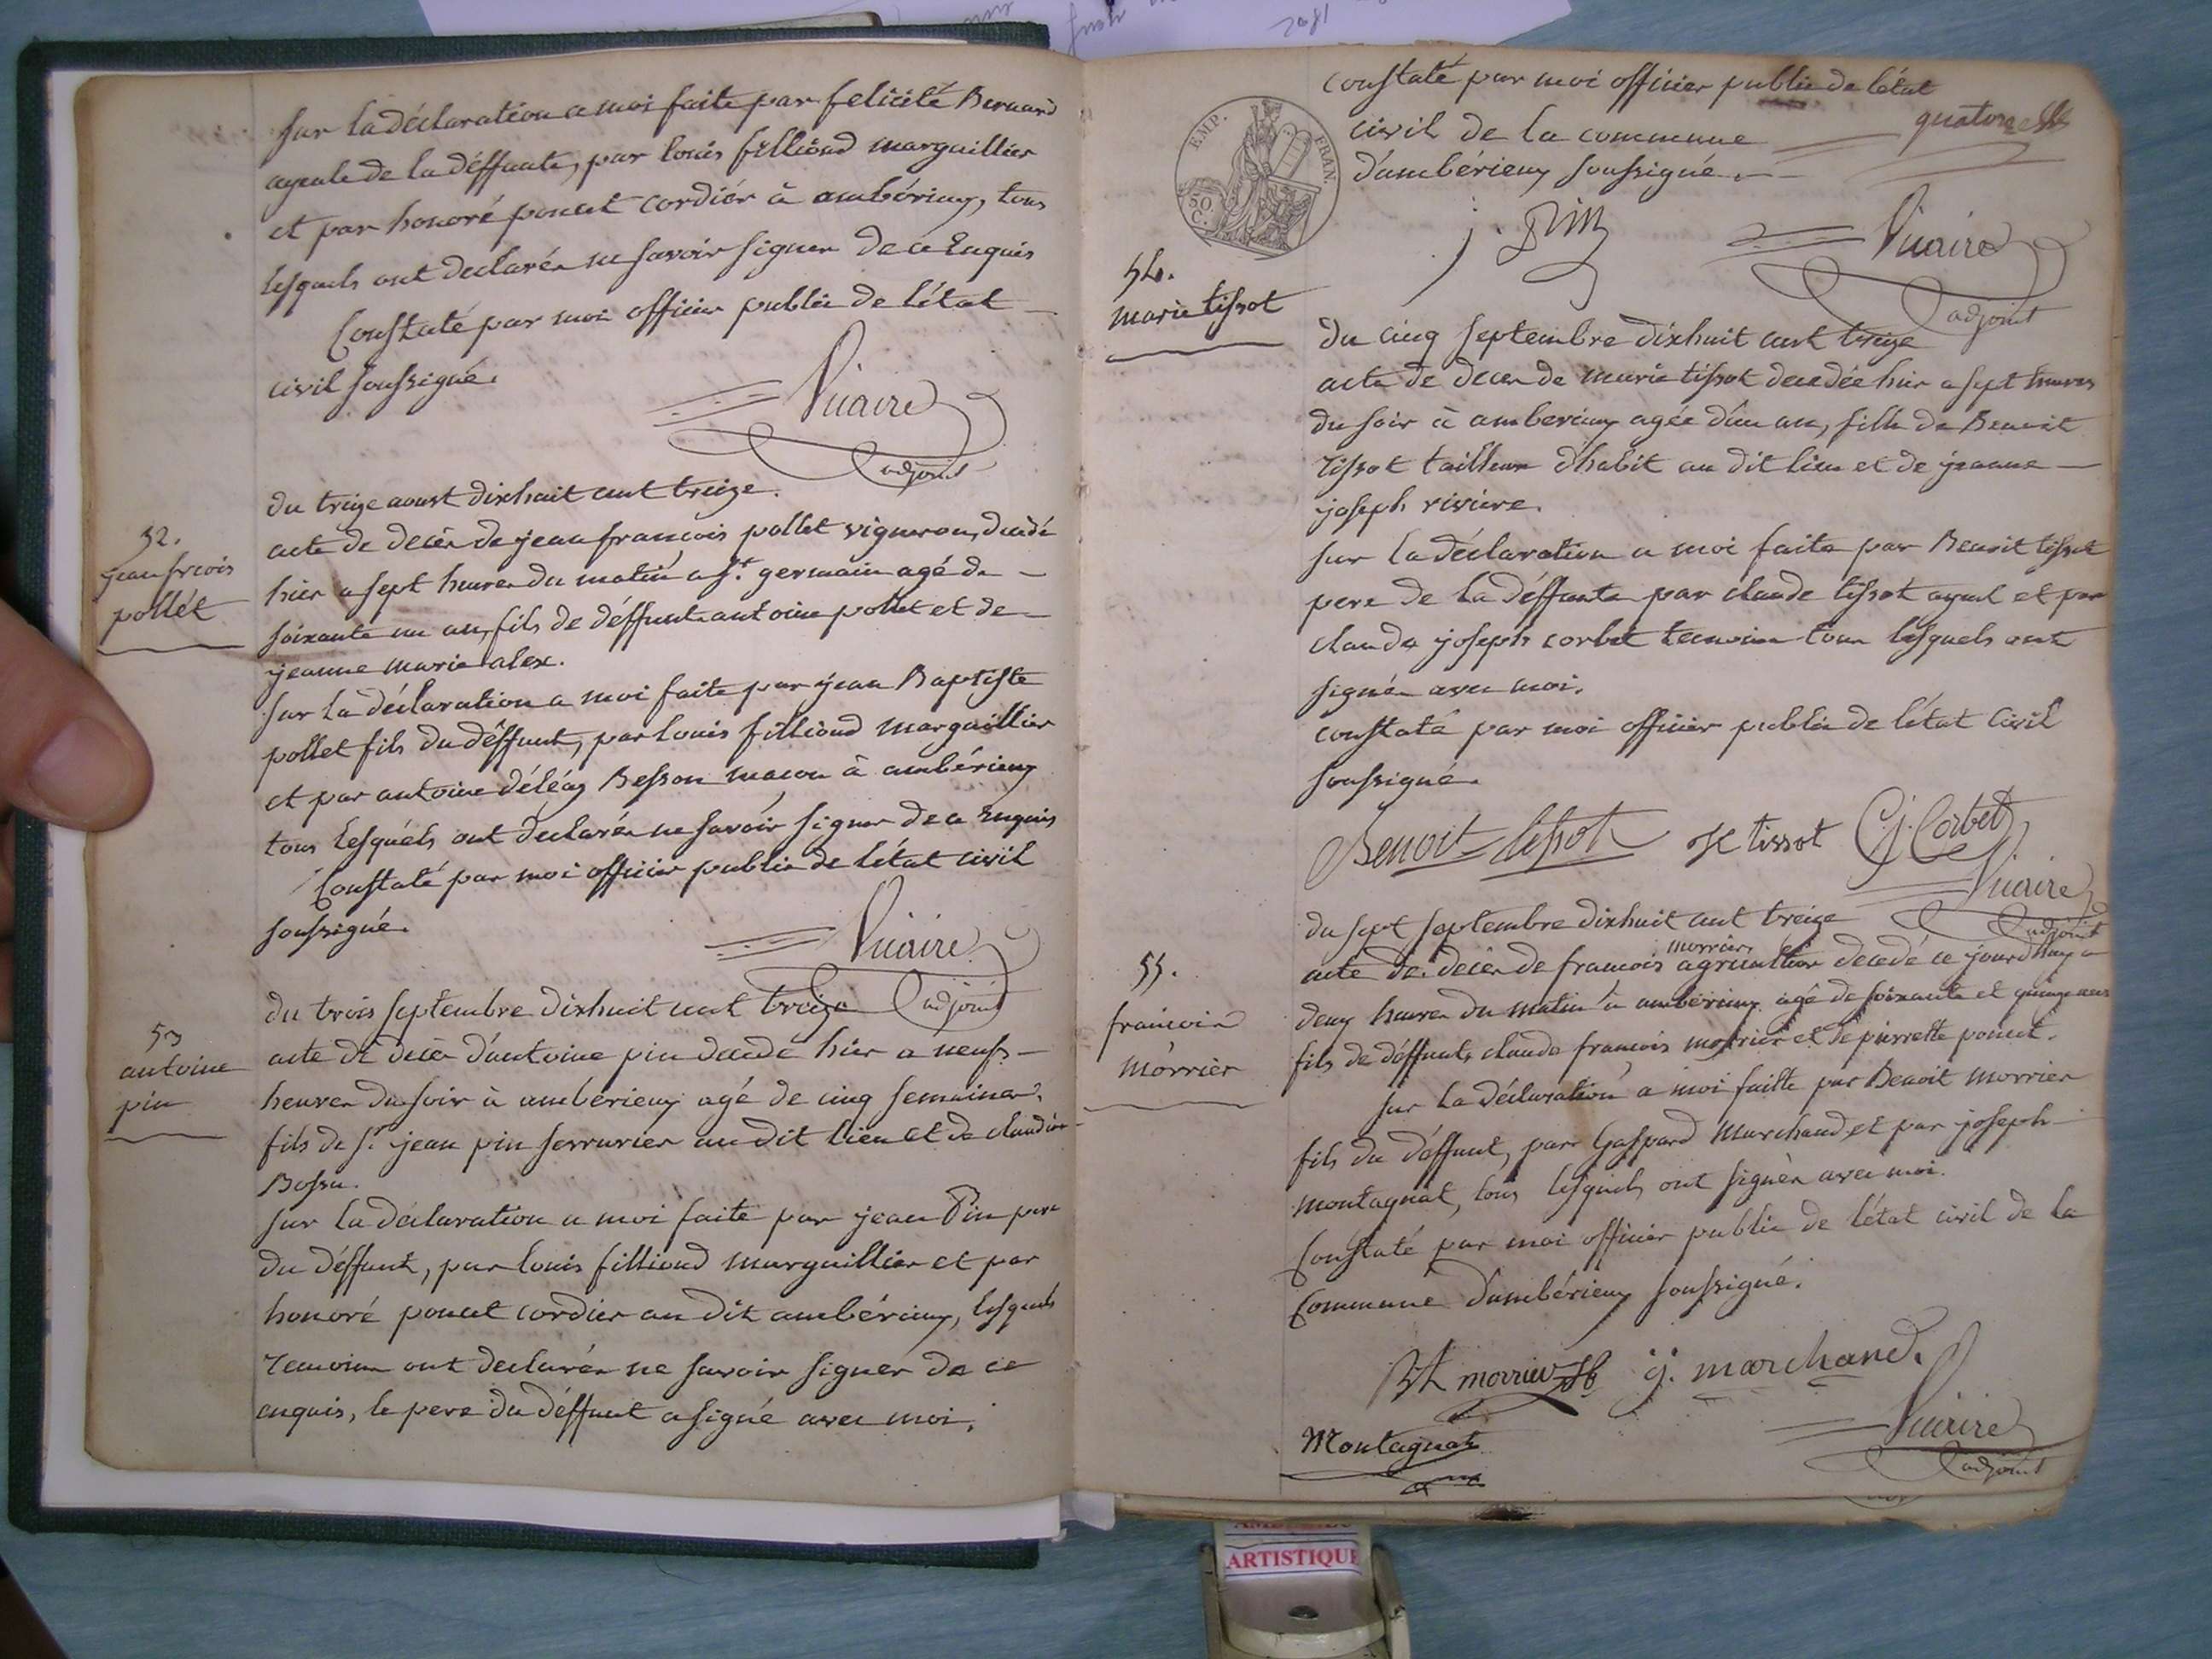 sur la déclaration a moi faite par felicité Bernard
ayeule de la déffunte, par louis filliond marguillier
et par honoré poncet cordiér à ambérieux, tous
lesquels ont declarés ne savoir signer de ce Enquis
Constaté par moi officier public de l'état
civil soussigné.
Vicaire
adjoint
52.
jean frcois
pollét
du treize aoust dixhuit cent treize.
acte de décès de jean francois pollet vigneron, décédé
hier a sept heures du matin a St. germain agé de
soixante un an, fils de déffunt antoine pollet et de
jeanne marie alex.
sur la déclaration a moi faite par jean Baptiste
pollet fils du déffunt, par louis filliond marguillier
et par antoine déléaz Besson macon à ambérieux
tous lesquels ont déclarés ne savoir signer de ce Enquis
Constaté par moi officier public de l'état civil
soussigné.
Vicaire
adjoint
53
antoine
pin
du trois septembre dixhuit cent treize
acte de décès d'antoine pin decedé hier a neufs
heures du soir à ambérieux agé de cinq semaines,
fils de sr. jean pin serrurier au dit lieu et de claudine
Bossu.
sur la déclaration a moi faite par jean Pin pere
du déffunt, par louis filliond marguillier et par
honoré poncet cordier au dit ambérieux, lesquels
temoins ont declarés ne savoir signer de ce
enquis, le pere du déffunt a signé avec moi.
constaté par moi officier public de l'état
civil de la commune
d'ambérieux soussigné.
quatorze
EMP. FRAN.
50
C.
j. Pin
Vicaire
adjoint
54.
marie tissot
du cinq septembre dixhuit cent treize
acte de deces de marie tissot decedée hier a sept heures
du soir à amberieux agée d'un an, fille de Benoit
Tissot tailleur d'habit au dit lieu et de jeanne
joseph riviere.
sur la déclaration a moi faite par Benoit tissot
pere de la déffunte par claude tissot ayeul et par
claude joseph corbet temoins tous lesquels ont
signés avec moi.
constaté par moi officier public de l'état civil
soussigné.
Benoit tissot tissot C. j. Corbet
Vicaire
adjoint
55.
francois
morrier
du sept septembre dixhuit cent treize
morrier
acte de décès de francois agriculteur decedé ce jourdhuy a
deux heures du matin à ambérieux agé de soixante et quinze ans
fils de déffunts claude francois morrier et de pierrette poncet.
sur la déclaration a moi faitte par Benoit morrier
fils du déffunt, par Gaspard Marchand et par joseph
montagnat, tous lesquels ont signés avec moi.
Constaté par moi officier public de l'état civil de la
Commune d'ambérieux soussigné.
Bt morrier g. marchand.
Montagnat
Vicaire
adjoint
ARTISTIQUE